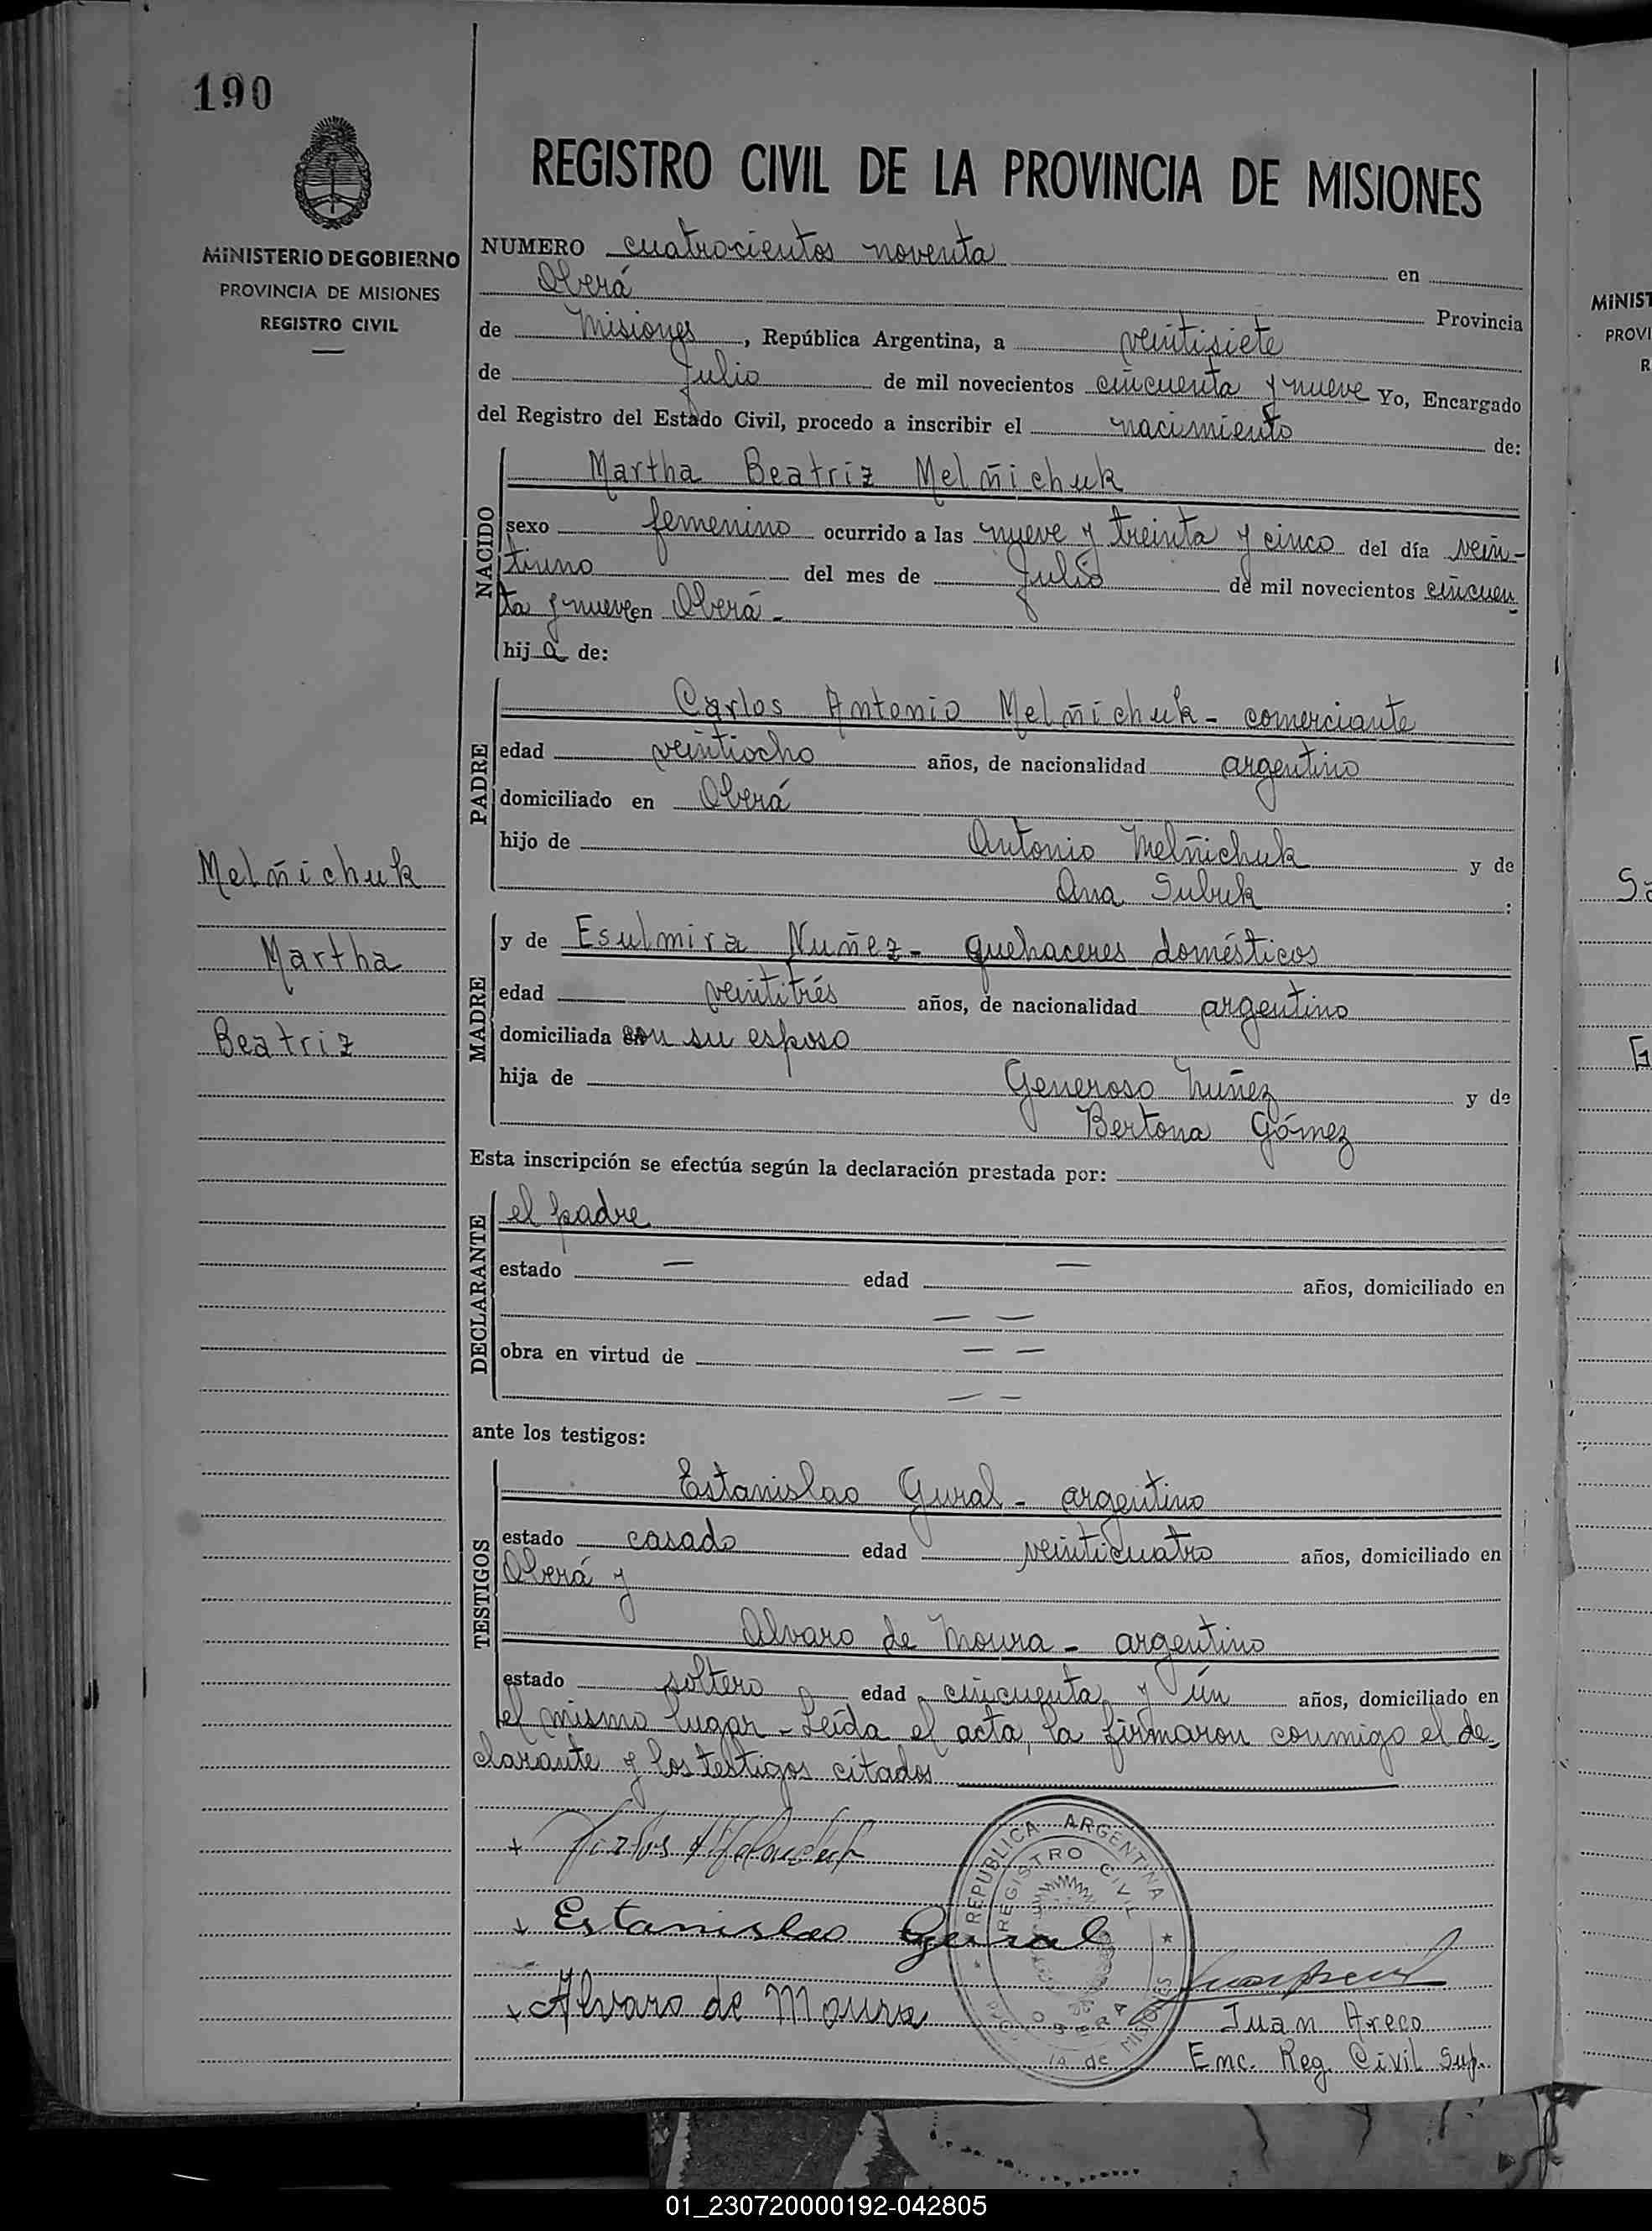 190
MINISTERIO DE GOBIERNO
PROVINCIA DE MISIONES
REGISTRO CIVIL
REGISTRO CIVIL DE LA PROVINCIA DE MISIONES
NUMERO cuatrocientos noventa en
Oberá Provincia
de Misiones, República Argentina, a veintisiete
de Julio de mil novecientos cincuenta y nueve Yo, Encargado
del Registro del Estado Civil, procedo a inscribir el nacimiento de:
NACIDO
Martha Beatriz Melñichuk
sexo femenino ocurrido a las nueve y treinta y cinco del día vein-
tiuno del mes de Julio de mil novecientos cincuen
ta y nueve en Oberá -
hij a de:
PADRE
Carlos Antonio Melñichuk - comerciante
edad veintiocho años, de nacionalidad argentino
domiciliado en Oberá
hijo de Antonio Melñichuk y de
Ana Subuk :
Melñichuk
Martha
Beatriz
MADRE
y de Esulmira Nuñez - quehaceres domésticos
edad veintitrés años, de nacionalidad argentino
domiciliada con su esposo
hija de Generoso Nuñez y de
Bertona Gómez
Esta inscripción se efectúa según la declaración prestada por:
DECLARANTE
el padre
estado — edad — años, domiciliado en
— —
obra en virtud de — —
— —
ante los testigos:
TESTIGOS
Estanislao Gural - argentino
estado casado edad veinticuatro años, domiciliado en
Oberá y
Alvaro de Moura - argentino
estado soltero edad cincuenta y ún años, domiciliado en
el mismo lugar - Leída el acta, la firmaron conmigo el de-
clarante y los testigos citados
Estanislao Gural
Alvaro de Moura
REPUBLICA ARGENTINA
REGISTRO CIVIL
OBERA
de MISIONES
Juan Areco
Enc. Reg. Civil Sup.
MINIST
PROVI
R
01_230720000192-042805